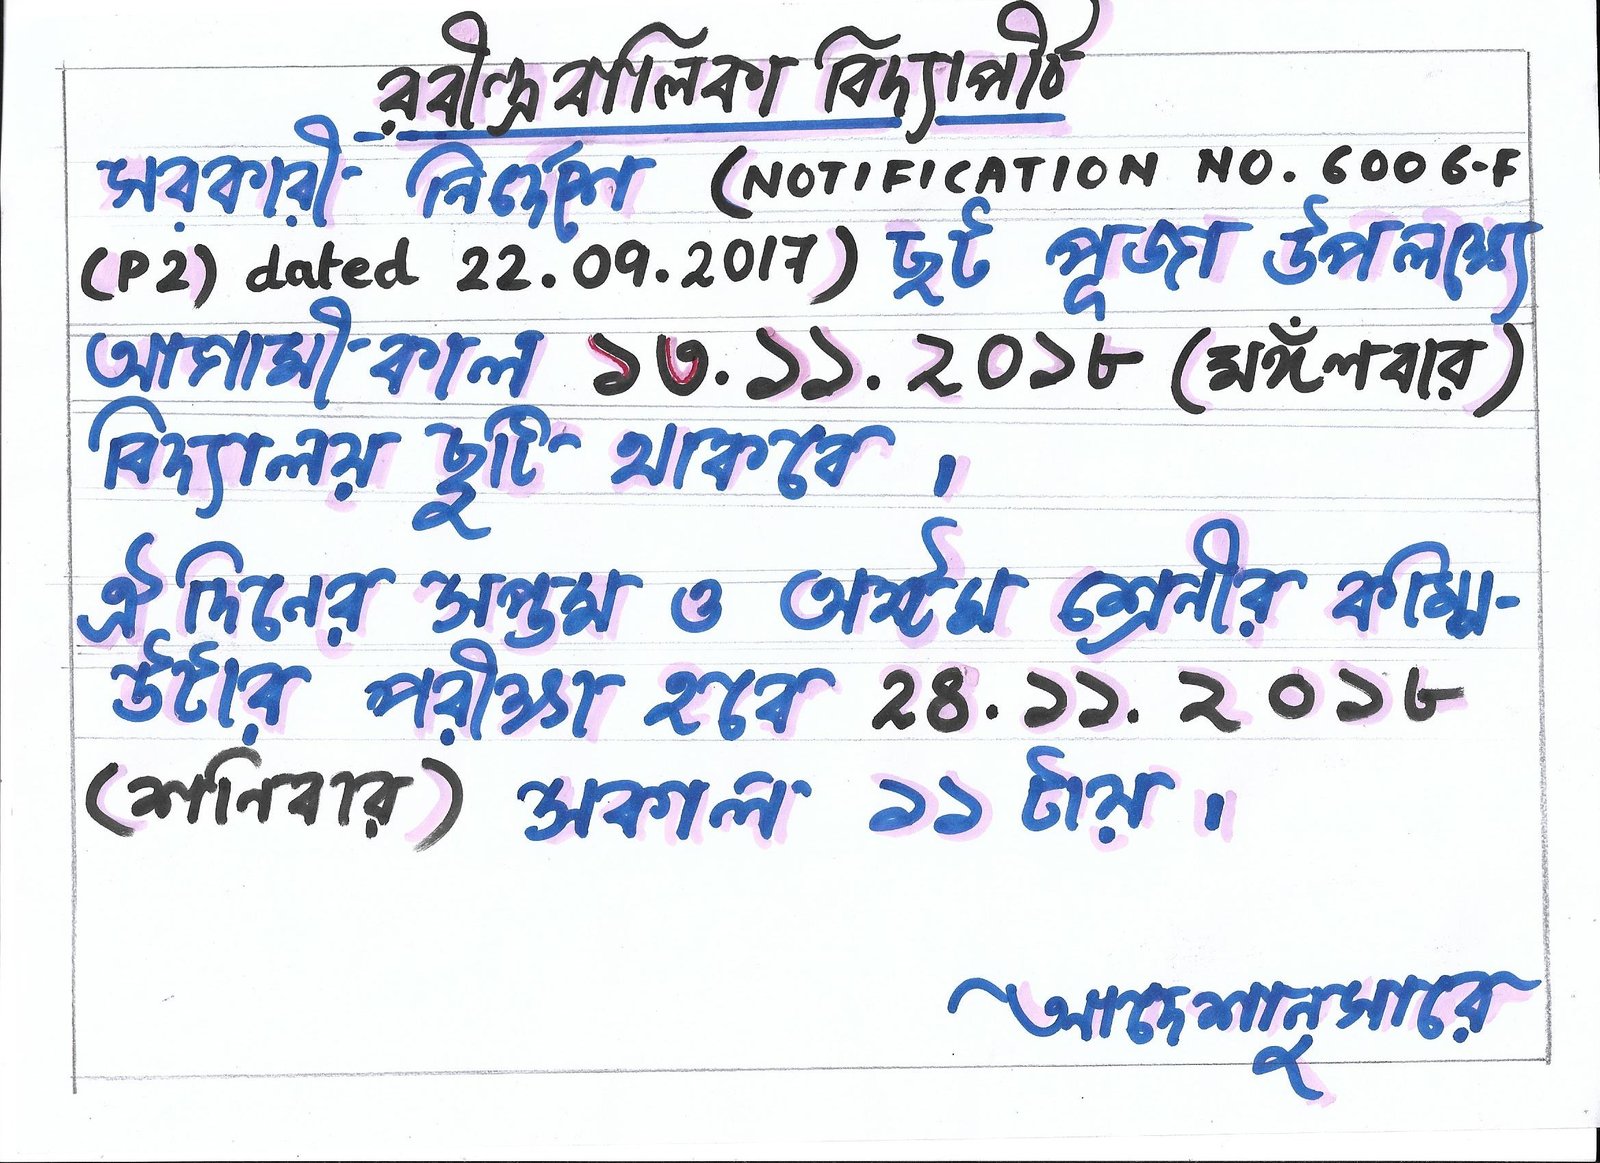 রবীন্দ্র বালিকা বিদ্যাপীঠ
সরকারী নির্দেশে (NOTIFICATION NO. 6006-F
(P2) dated 22.09.2017) ছট পূজা উপলক্ষ্যে
আগামী কাল ১৩.১১.২০১৮ (মঙ্গঁলবার)
বিদ্যালয় ছুটি থাকবে ।
ঐ দিনের সপ্তম ও অষ্টম শ্রেনীর কম্পি-
উটার পরীক্ষা হবে ২৪.১১.২০১৮
(শনিবার) সকাল ১১ টায় ।
আদেশানুসারে